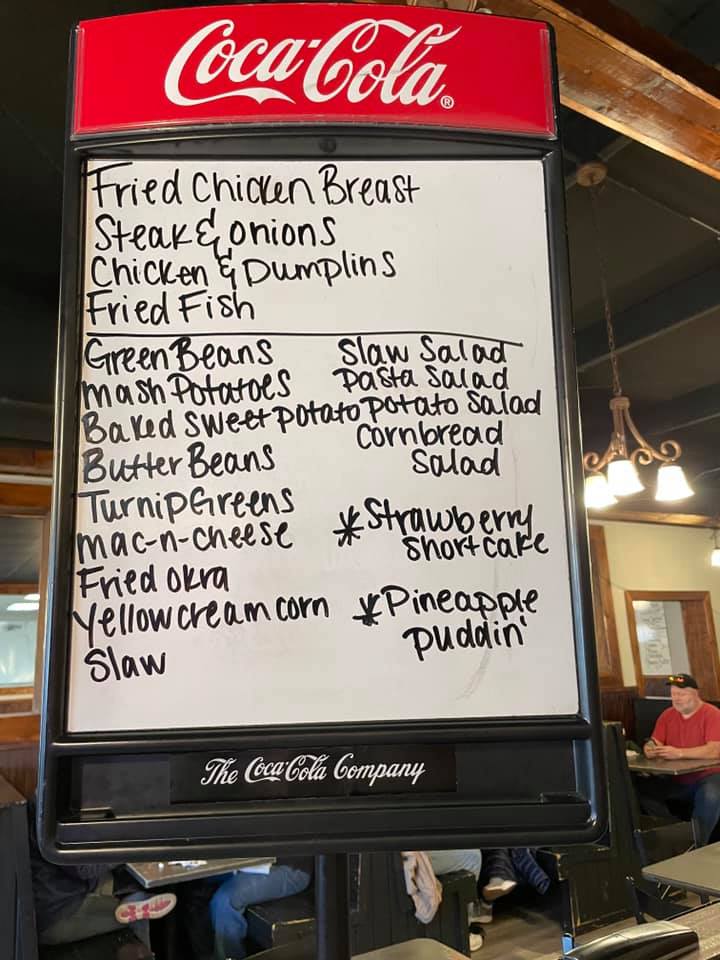 Coca-Cola®
Fried Chicken Breast
Steak & onions
Chicken & Dumplins
Fried Fish
Green Beans
mash Potatoes
Baked sweet potato
Butter Beans
Turnip Greens
mac-n-cheese
Fried okra
Yellow cream corn
Slaw
Slaw Salad
Pasta Salad
potato Salad
Cornbread
Salad
*Strawberry
Shortcake
*Pineapple
puddin'
The Coca-Cola Company